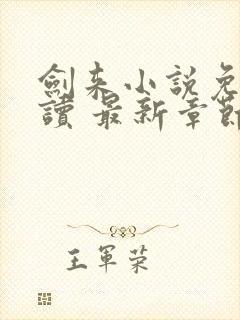 劍来小說免
讀 最新章節
王軍荣